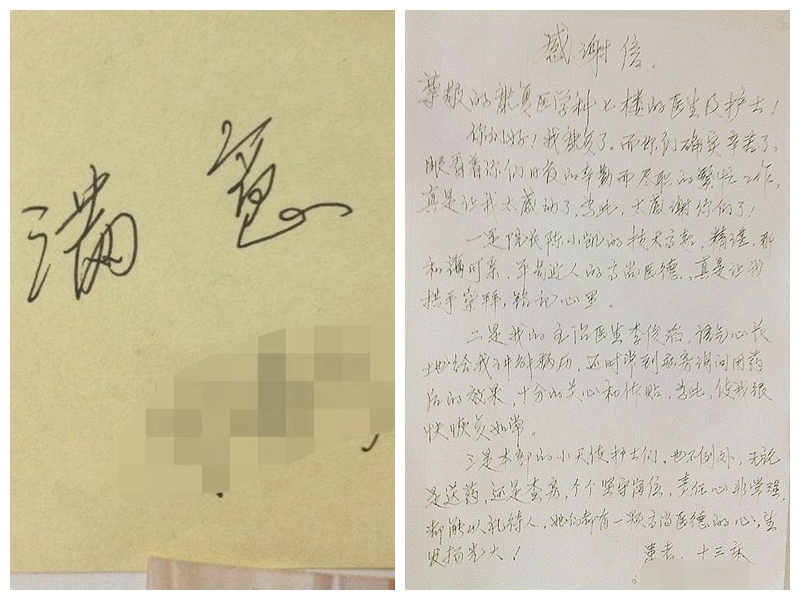 满意
感谢信.
尊敬的康复医学科七楼的医生及护士!
你们好!我康复了。而你们确实辛苦了。
眼看着你们日夜的辛勤而
的繁忙工作,
真是让我太感动了,为此,太感谢你们了!
一是院长陈小凯的技术高超,精湛,那
和蔼可亲,平易近人的高尚医德,真是让我
拱手崇拜,铭记心里。
二是我的主治医生李俊
,语句心长
地给我讲解病历,还时常到病房询问用药
后的效果,十分的关心和体贴,为此,使我很
快恢复如常。
三是本部的小天使护士们,也不例外,无论
是送药,还是查房,个个坚守岗位,责任心非常强,
都能以礼待人,她们都有一颗高尚医德的心,
发扬光大!
患者. 十三床